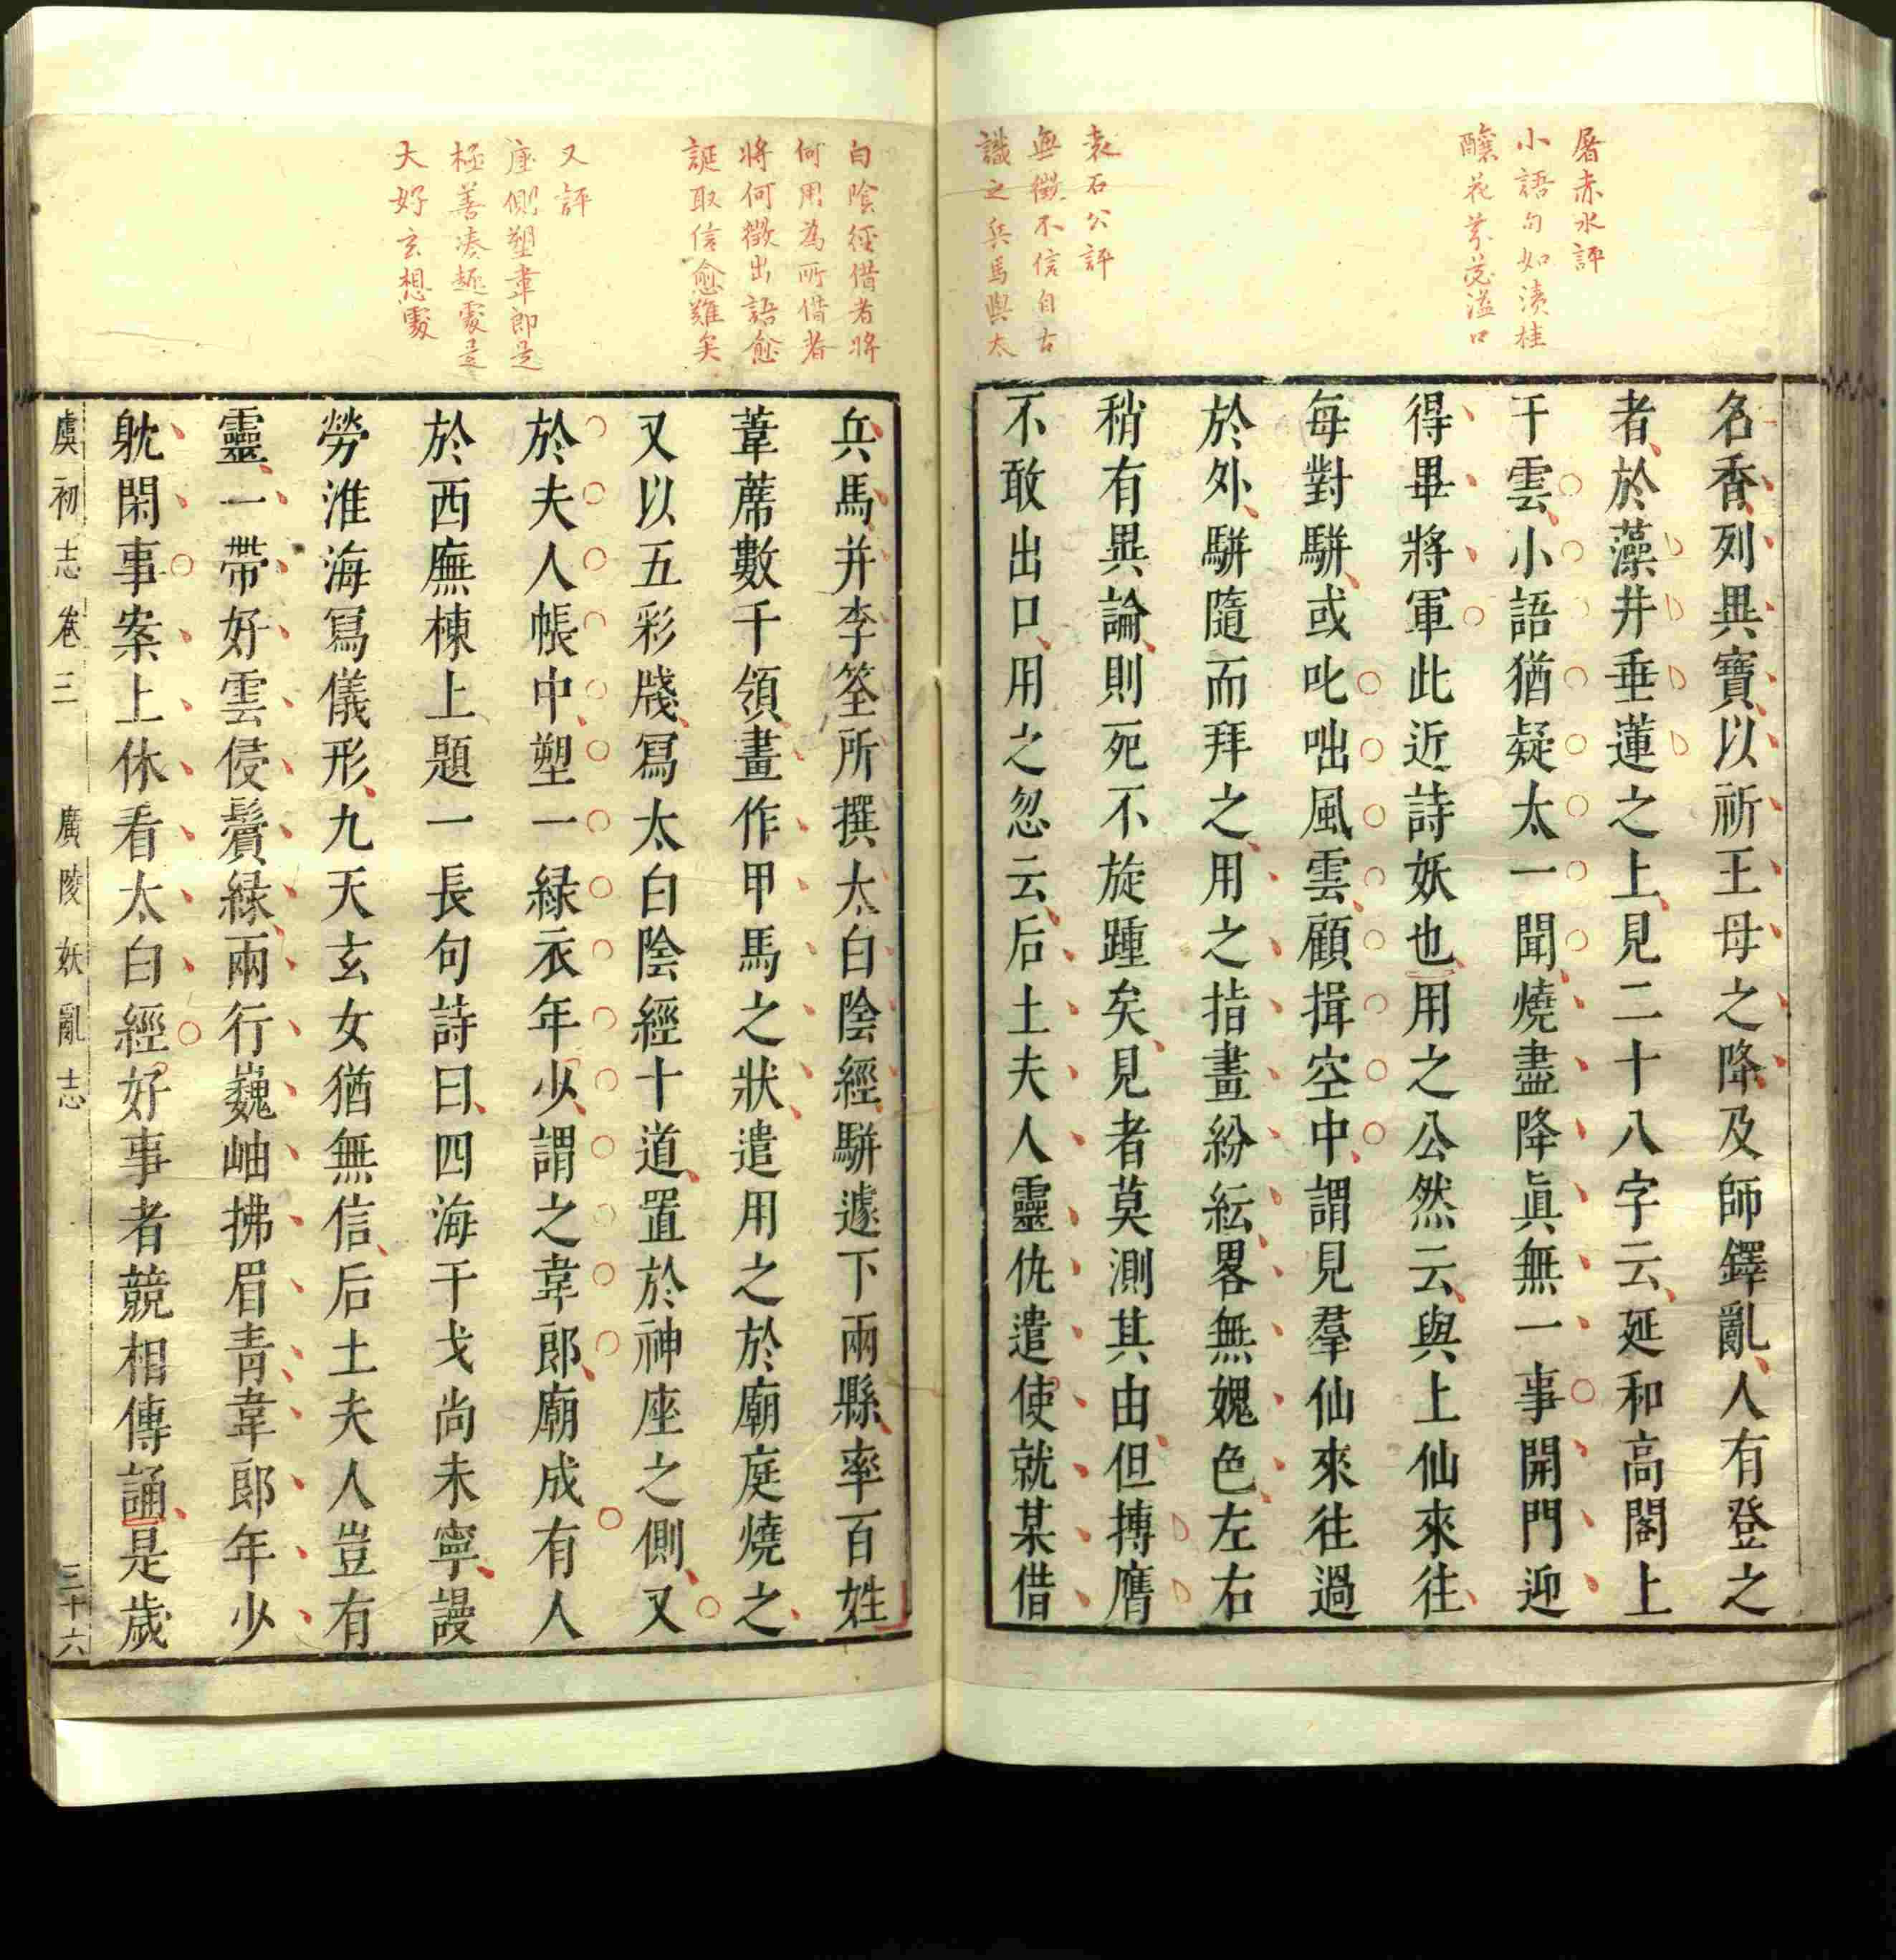 屠赤水評
小語句如漬桂
釀花芬茂溢口
袁石公評
無徵不信自古
識之兵馬與太
名香列異寶以祈王母之降及師鐸亂人有登之
者於藻井垂蓮之上見二十八字云延和高閣上
干雲小語猶疑太一聞燒盡降眞無一事開門迎
得畢將軍此近詩妖也用之公然云與上仙來往
每對駢或叱咄風雲顧揖空中謂見羣仙來往過
於外駢隨而拜之用之指畫紛紜畧無媿色左右
稍有異論則死不旋踵矣見者莫測其由但摶膺
不敢出口用之忽云后土夫人靈仇遣使就某借
白陰經借者將
何用為所借者
將何徵出語愈
誕取信愈難矣
又評
座側塑韋郎是
極善湊趣處是
大好玄想處
兵馬并李筌所撰太白陰經駢遽下兩縣率百姓
葦蓆數千領畫作甲馬之狀遣用之於廟庭燒之
又以五彩牋寫太白陰經十道置於神座之側又
於夫人帳中塑一綠衣年少謂之韋郎廟成有人
於西廡棟上題一長句詩曰四海干戈尚未寧謾
勞淮海寫儀形九天玄女猶無信后土夫人豈有
靈一帶好雲侵鬢綠兩行巍岫拂眉青韋郎年少
躭閑事案上休看太白經好事者競相傳誦是歲
虞初志卷三 廣陵妖亂志 三十六